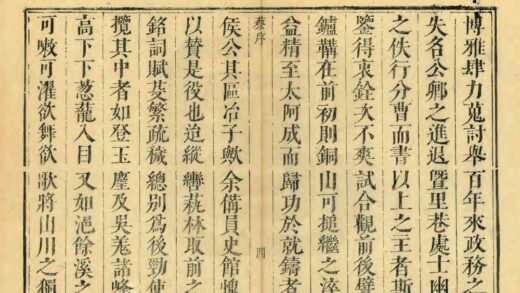 博雅肆力蒐討舉百年來政務之
失名公卿之進退暨里巷處士幽
之佚行分曹而書以上之王者斯
鑒得衷銓次不爽試合觀前後譬
鑪鞲在前初則銅山可搥繼之
益精至太阿成而歸功於就鑄者
蔡序
四
矦公其區冶子歟余備員史館愧
以贊是役也迨縱轡蓺林取前之
銘詞賦芟繁疏穢總別為後勁使
攬其中者如登玉麈及吳善諸峰
高下下葱蘢入目又如浥餘溪之
可嗽可濯欲舞欲歌將山川之獨